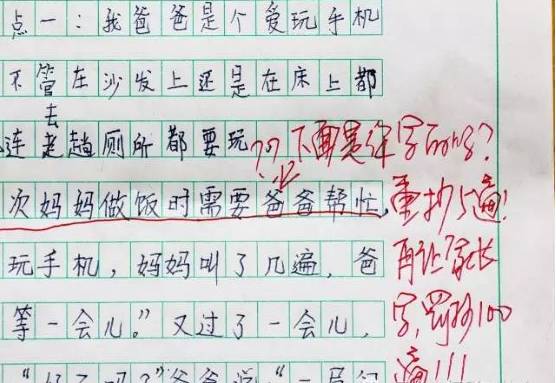 点一：我爸爸是个爱玩手机
不管在沙发上还是在床上都
去
连老趟厕所都要玩
次妈妈做饭时需要爸爸帮忙，
玩手机，妈妈叫了几遍，爸
等一会儿。”又过了一会儿，
爸爸说：“一局
??下面是你写的吗?
重抄5遍!
再让家长
字,罚抄100
遍!!!